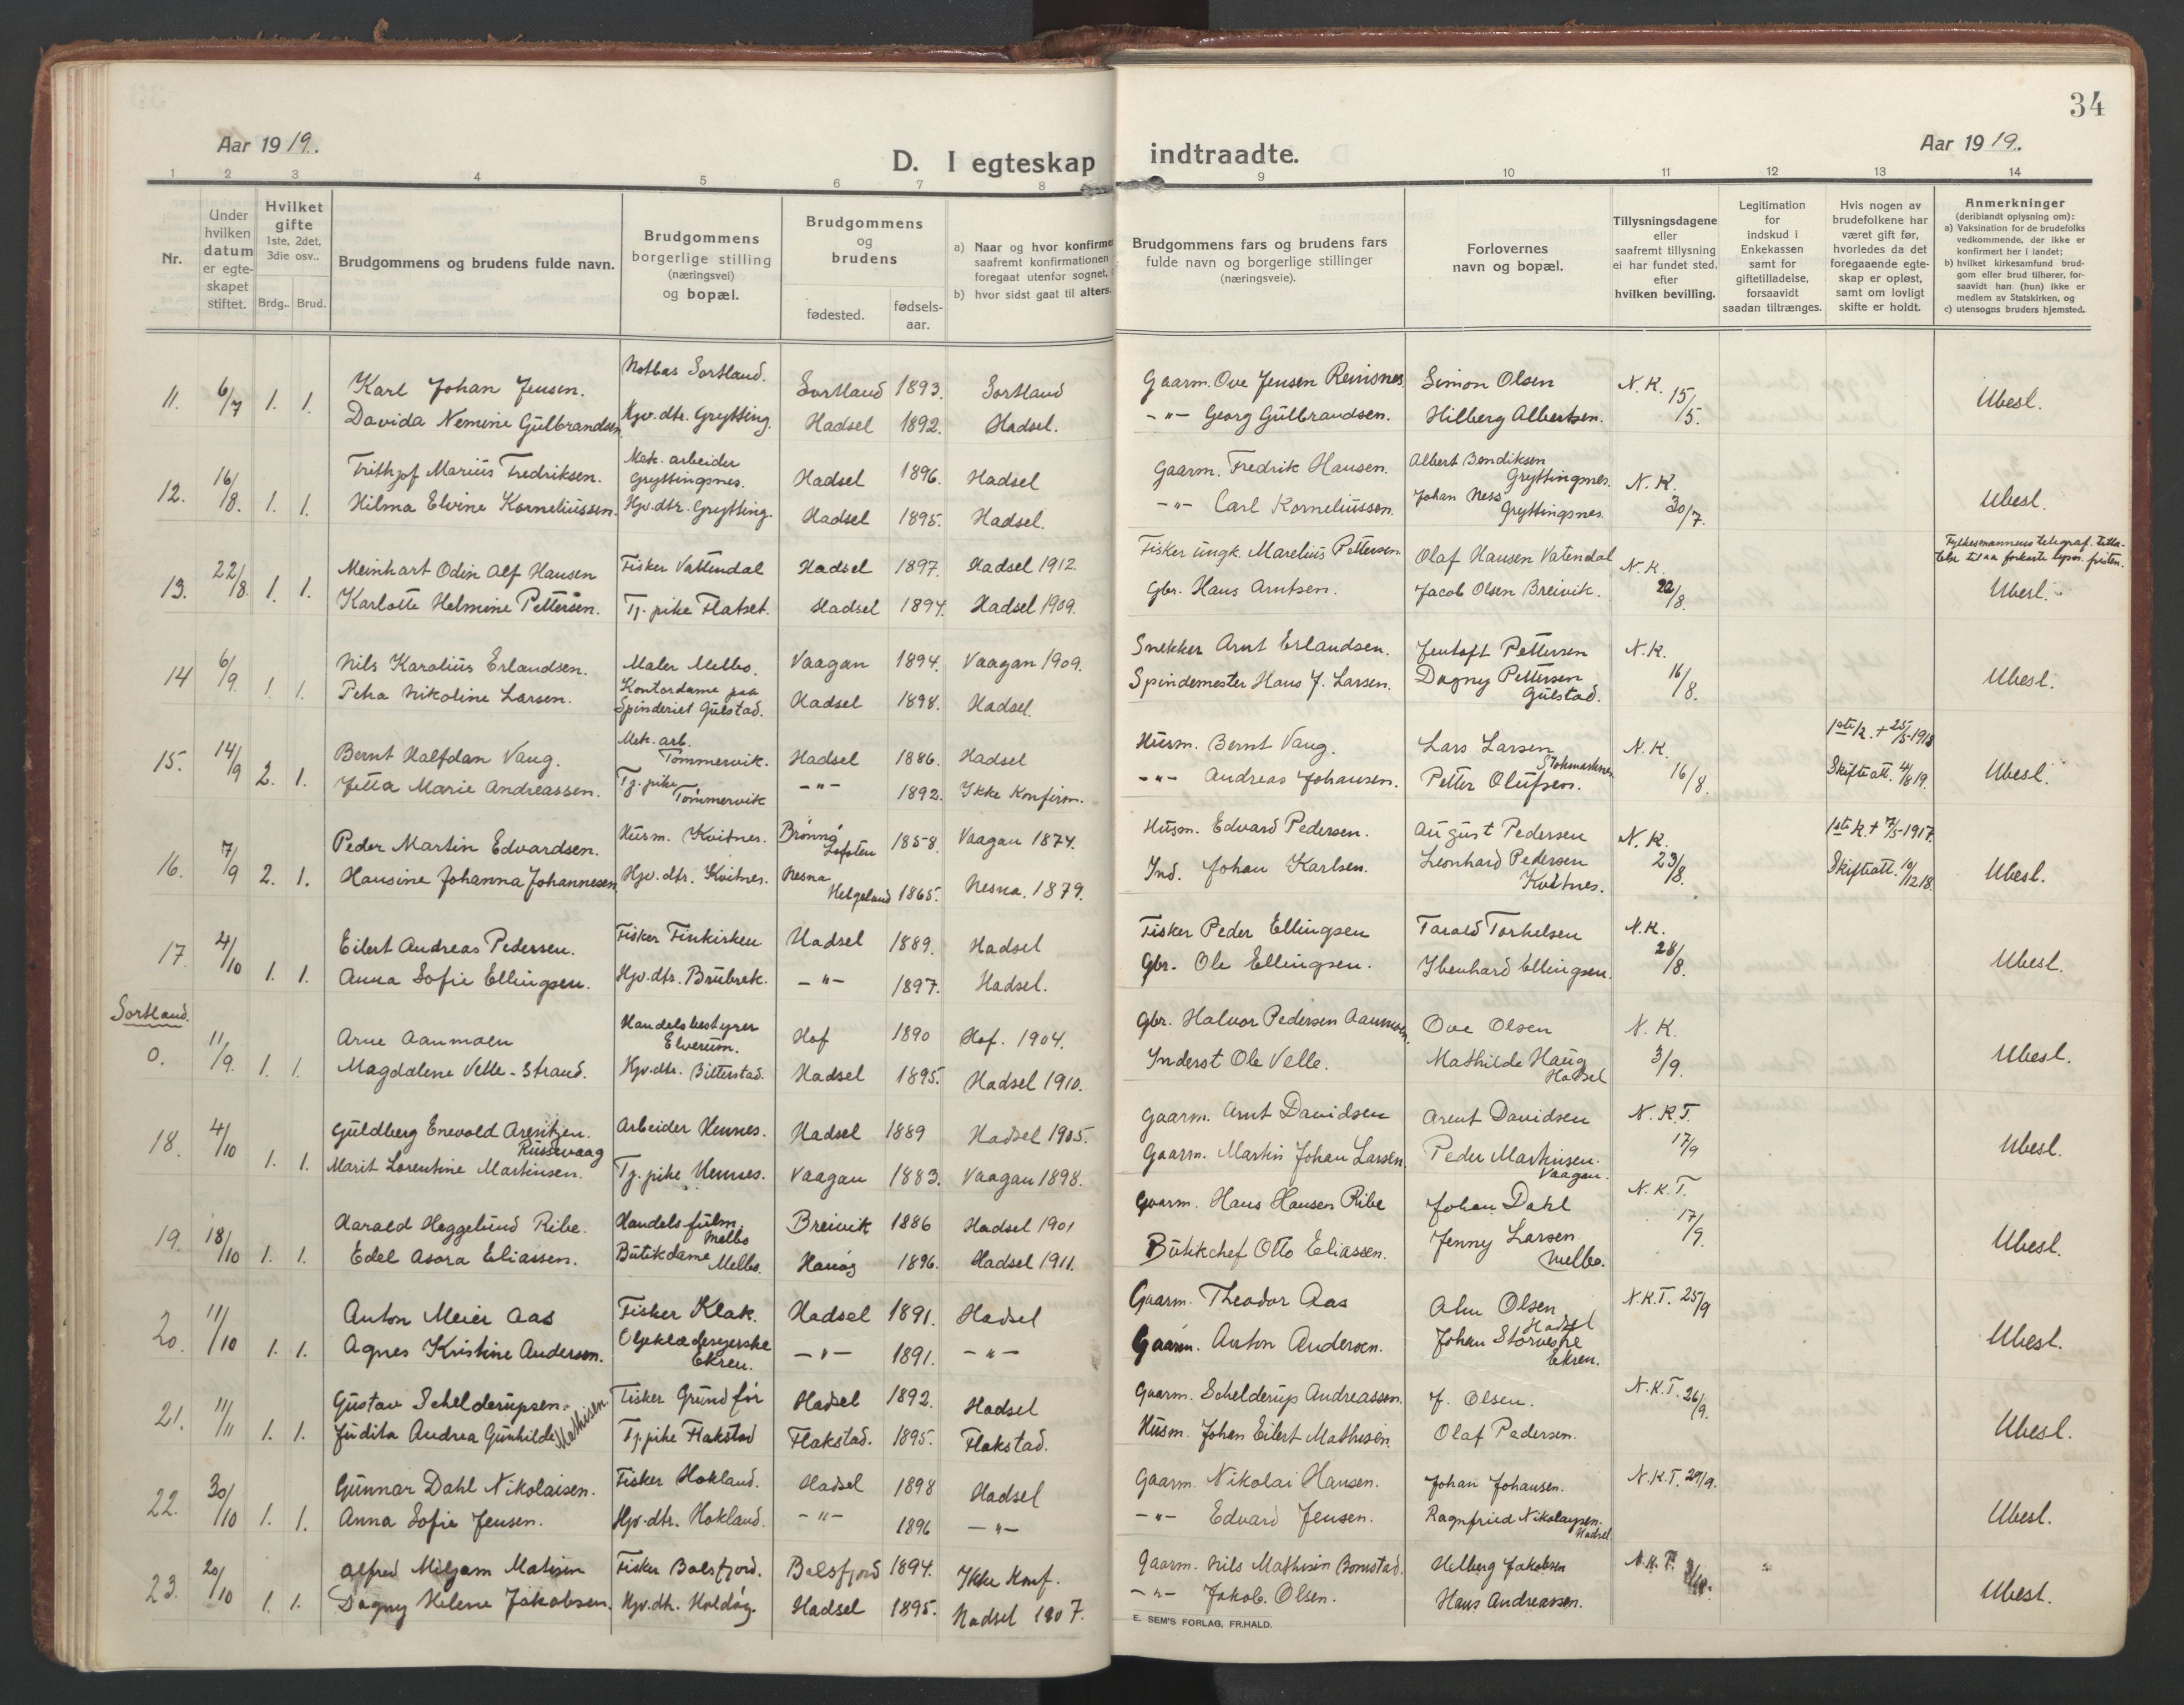 34
Aar 1919.
Aar 1919.
D. I egteskap indtraadte.
1 2 3 4 5 6 7 8 9 10 11 12 13 14
Nr.
Under hvilken datum er egte-skapet stiftet.
Hvilket gifte
1ste, 2det, 3die osv..
Brdg.. Brud.
Brudgommens og brudens fulde navn.
Brudgommens borgerlige stilling (næringsvei) og bopæl.
Brudgommens og brudens
fødested.
fødsels-aar.
a) Naar og hvor konfirme
saafremt konfirmationen
foregaat utenfor sognet,
b) hvor sidst gaat til alters.
Brudgommens fars og brudens fars
fulde navn og borgerlige stillinger
(næringsveie).
Forlovernes
navn og bopæl.
Tillysningsdagene
eller
saafremt tillysning
ei har fundet sted,
efter
hvilken bevilling.
Legitimation
for
indskud i
Enkekassen
samt for
giftetilladelse,
forsaavidt
saadan tiltrænges.
Hvis nogen av
brudefolkene har
været gift før,
hvorledes da det
foregaaende egte-
skap er opløst,
samt om lovligt
skifte er holdt.
Anmerkninger
(deriblandt oplysning om):
a) Vaksination for de brudefolks
vedkommende, der ikke er
konfirmert her i landet;
b) hvilket kirkesamfund brud-
gom eller brud tilhører, for-
saavidt han (hun) ikke er
medlem av Statskirken, og
c) utensogns bruders hjemsted.
11. 6/7 1. 1. Karl Johan Jensen. Notbas Sortland. Sortland 1893. Sortland Gaarm. Ove Jensen Reinsnes Simon Olsen N. K. 15/5. Ubesl.
Davida Nemine Gulbrandsen Hjv. dtr. Grytting. Hadsel 1892. Hadsel. -"- Georg Gulbrandsen. Hilberg Albertsen.
12. 16/8. 1. 1. Frithjof Marius Fredriksen. Mek. arbeider Gryttingsnes. Hadsel 1896. Hadsel Gaarm. Fredrik Hansen. Albert Bendiksen Gryttingsnes. N. K. 30/7. Ubesl.
Hilma Elvine Korneliussen. Hjv. dtr. Grytting. Hadsel 1895. Hadsel. -"- Carl Korneliussen. Johan Ness Gryttingsnes.
13. 22/8. 1. 1. Meinhart Odin Alf Hansen Fisker Vattendal Hadsel 1897. Hadsel 1912. Fisker ungk. Marelius Pettersen Olaf Hansen Vatendal N. K. 22/8. Fylkesmannens telegraf. tilla-
telse til aa forkorte lysn. fristen.
Ubesl.
Karlotte Helmine Pettersen. Tj. pike Flatset. Hadsel 1894. Hadsel 1909. Gbr. Hans Arntsen. Jacob Olsen Breivik.
14 6/9. 1. 1. Nils Karolius Erlandsen. Maler Melbo. Vaagan 1894. Vaagan 1909. Snekker Arnt Erlandsen. Jentoft Pettersen N. K. 16/8. Ubesl.
Petra Nikoline Larsen. Kontordame paa Spinderiet Gulstad. Hadsel 1898. Hadsel. Spindemester Hans J. Larsen. Dagny Pettersen Gulstad.
15. 14/9 2. 1. Bernt Halfdan Vang. Mek. arb. Tømmervik. Hadsel 1886. Hadsel Husm. Bernt Vang. Lars Larsen Stokmarknes. N. K. 16/8. 1ste k. + 25/5-1918 Skifteatt. 4/8 19. Ubesl.
Jetta Marie Andreassen. Tj. pike Tømmervik -"- 1892. Ikke Konfirm. -"- Andreas Johansen. Petter Olufsen.
16. 7/9 2. 1. Peder Martin Edvardsen. Husm. Kvitnes. Brønnø Lofoten 1858. Vaagan 1874. Husm. Edvard Pedersen. August Pedersen N. K. 23/8. 1ste k. + 7/5-1917. Skifteatt. 10/12 18. Ubesl.
Hansine Johanna Johannesen Hjv. dtr. Kvitnes. Nesna Helgeland 1865. Nesna. 1879. Ind. Johan Karlsen. Leonhard Pedersen Kvitnes.
17. 4/10 1. 1. Eilert Andreas Pedersen. Fisker Finkirken Hadsel 1889. Hadsel Fisker Peder Ellingsen Tarald Torkelsen N. K. 28/8. Ubesl.
Anna Sofie Ellingsen. Hjv. dtr. Brubrek. -"- 1897. Hadsel. Gbr. Ole Ellingsen. Ibenhard Ellingsen.
Sortland.
0. 11/9. 1. 1. Arne Aanmoen Handelsbestyrer Elverum. Hof 1890 Hof. 1904. Gbr. Halvor Pedersen Aanmoen. Ove Olsen N. K. 3/9. Ubesl.
Magdalene Velle-Strand. Hjv. dtr. Bitterstad. Hadsel 1895. Hadsel 1910. Inderst Ole Velle. Mathilde Haug Hadsel
18. 4/10 1. 1. Guldberg Enevold Arentzen. Russevaag Arbeider Hennes. Hadsel 1889 Hadsel 1905. Gaarm. Arnt Davidsen Arent Davidsen N. K. T. 17/9 Ubesl.
Marit Lorentine Martinsen. Tj. pike Hennes. Vaagan 1883. Vaagan 1898. Gaarm. Martin Johan Larsen. Peder Martinsen. Vaagan.
19. 18/10 1. 1. Harald Heggelund Ribe. Handelsfulm. Melbo Breivik 1886 Hadsel 1901 Gaarm. Hans Hansen Ribe Johan Dahl N. K. T. 17/9. Ubesl.
Edel Asora Eliassen. Butikdame Melbo. 1896. Hadsel 1911. Butikchef Otto Eliassen. Jenny Larsen Melbo.
20. 11/10 1. 1. Anton Meier Aas Fisker Klak. Hadsel 1891. Hadsel Gaarm. Theodor Aas Olsen Hadsel N.K.T. 25/9 Ubesl.
Agnes Kristine Andersen. Oljeklædesyerske Ekren. -"- 1891. -"- Gaarm. Anton Andersen. Johan Ekren.
21. 11/11 1. 1. Gustav Schelderupsen. Fisker Grundfør Hadsel 1892. Hadsel Gaarm. Schelderup Andreassen. J. Olsen. N.K.T. 26/9. Ubesl.
Judita Andrea Gunhilde Mathisen. Tj. pike Flakstad Flakstad. 1895. Flakstad. Husm. Johan Eilert Mathisen. Olaf Pedersen.
22. 30/10 1. 1. Gunnar Dahl Nikolaisen. Fisker Hokland. Hadsel 1898 Hadsel Gaarm. Nikolai Hansen. Johan Johansen. N.K.T. 29/9. Ubesl.
Anna Sofie Jensen. Hjv. dtr. Hokland. -"- 1896 -"- -"- Edvard Jensen. Ragnfried Nikolaysen. Hadsel
23. 20/10 1. 1. Alfred Miljam Matisen Fisker Balsfjord. Balsfjord 1894. Ikke Konf. Gaarm. Nils Mathisen Bomstad. Helberg Jakobsen N.K.T. Ubesl.
Dagny Helene Jakobsen. Hjv. dtr. Holdøy. Hadsel 1895. Hadsel 1907. -"- Jakob Olsen. Hans Andreassen.
E. SEM'S FORLAG, FR.HALD.